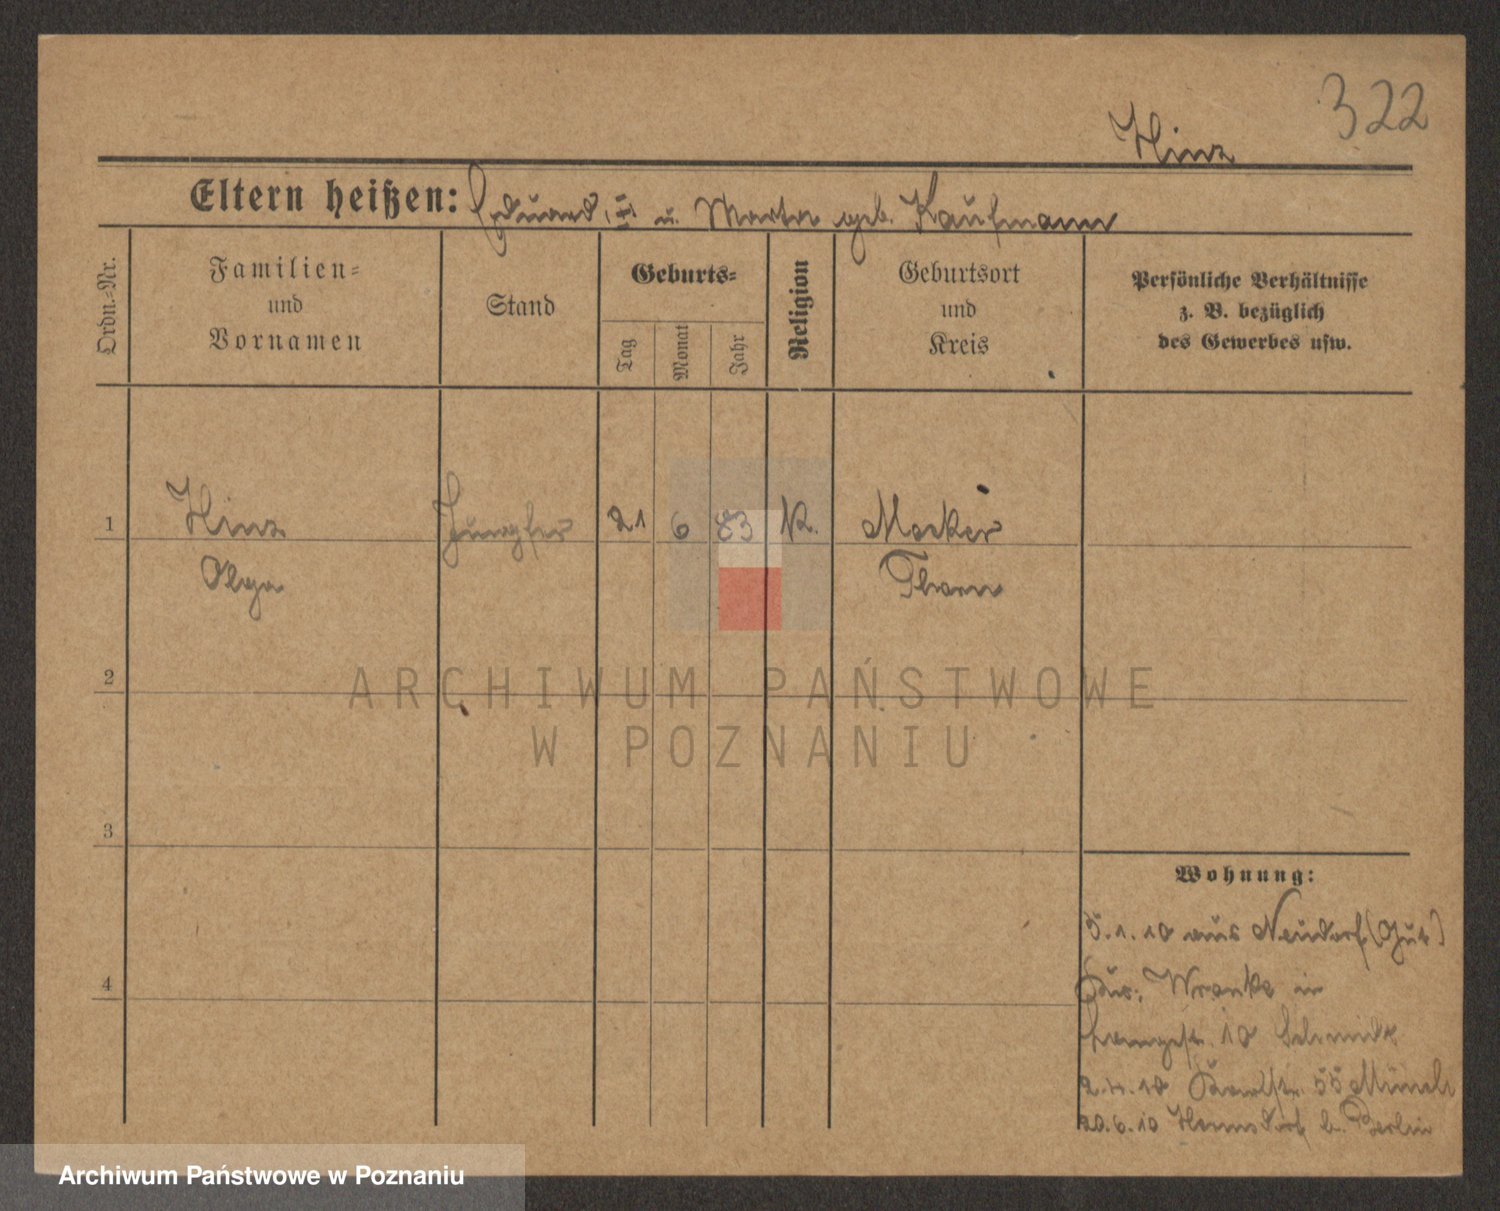 322
Hinz
Eltern heißen: Eduard H. u. Marta geb. Kaufmann
Ordn.-Nr.
Familien-
und
Vornamen
Stand
Geburts-
Tag
Monat
Jahr
Religion
Geburtsort
und
Kreis
Persönliche Verhältnisse
z. B. bezüglich
des Gewerbes usw.
1 Hinz Jungfer 21 6 83 K. Mocker
Olga Thorn
2
ARCHIWUM PAŃSTWOWE
W POZNANIU
3
4
Wohnung:
5.1.10 aus Neudorf (Gut)
Wronke in
10 Schmidt
2.4.10 55 Münch
20.6.10 Hermsdorf b. Berlin
Archiwum Państwowe w Poznaniu